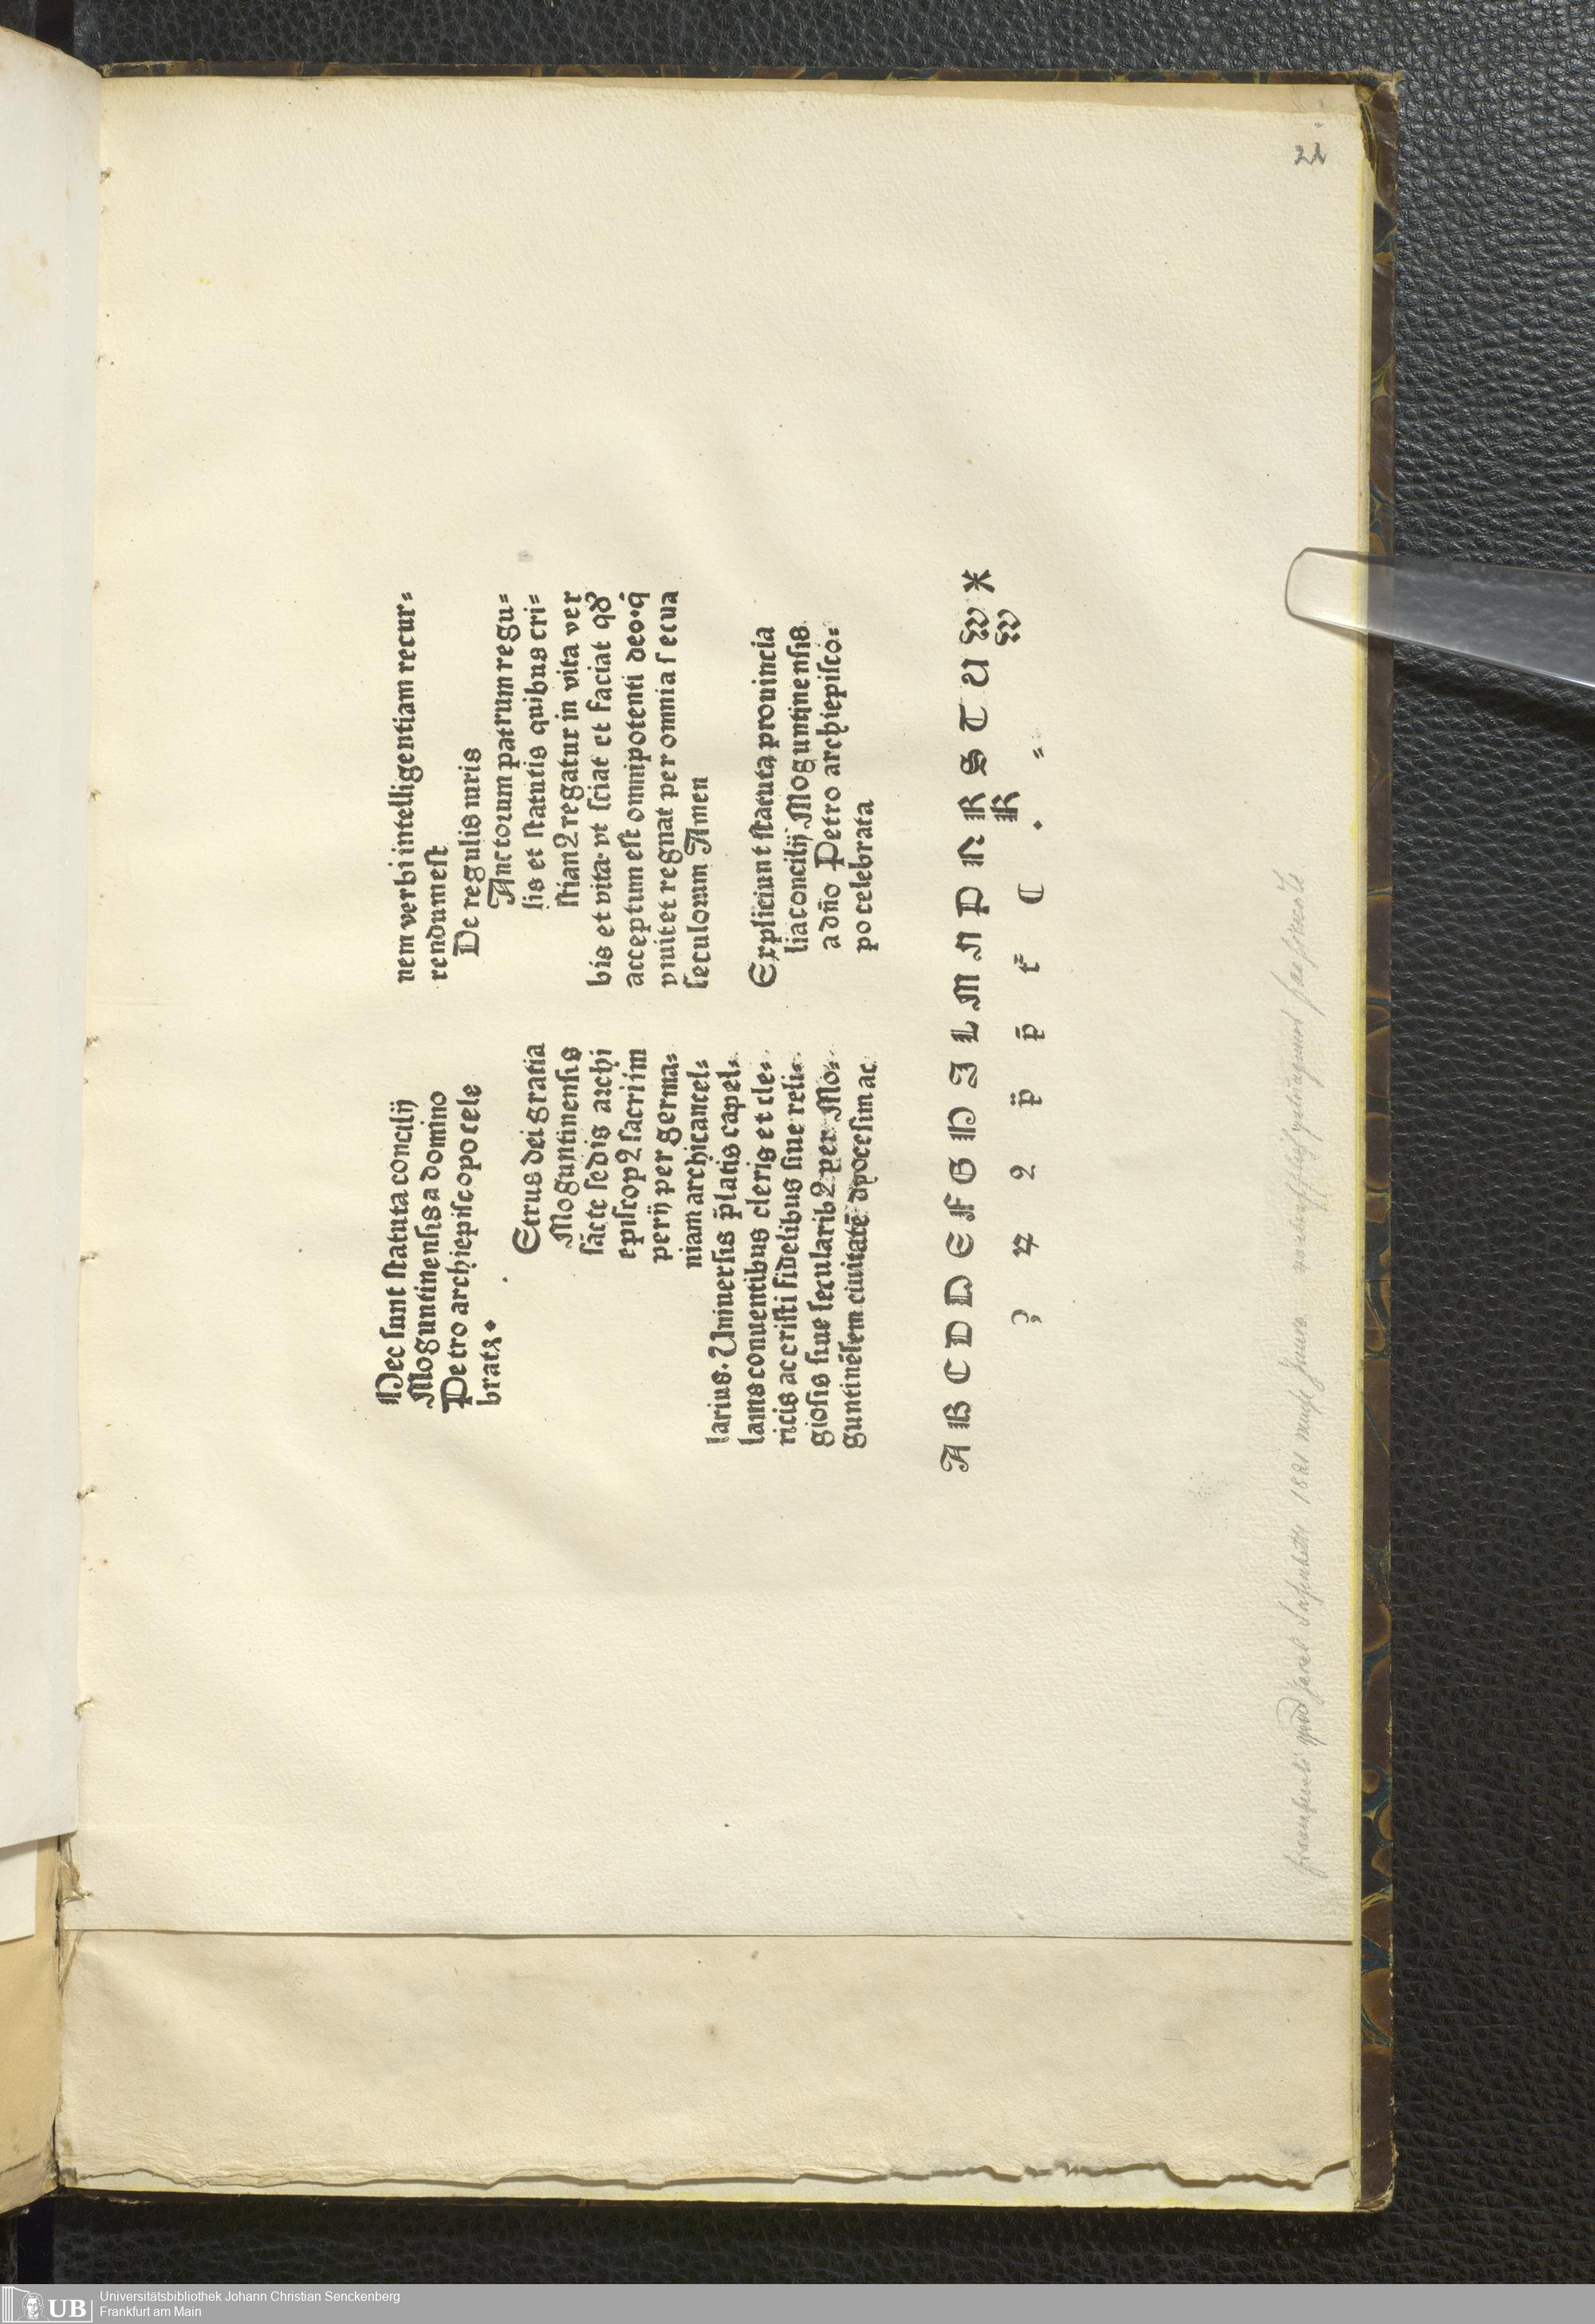 22
Hec sunt statuta concilij
Moguntinensis a domino
Petro archiepiscopo cele
bratꝫ.
Etrus dei gratia
Moguntinensis
sācte sedis archi
episcopꝰ sacri im
perij per germa⸗
niam archicancel⸗
larius. Uniuersis p̄latis capel⸗
lanis conuentibus cleris et cle⸗
ricis ac cristi fidelibus siue reli⸗
giosis siue secularibꝰ per Mo⸗
guntinēsem ciuitatē dyocesim ac
nem verbi intelligentiam recur⸗
rendum est
De regulis iuris
Anctorum patrum regu⸗
lis et statutis quibus cri⸗
stianꝰ regatur in vita ver
bis et vita. vt sciat et faciat qđ
acceptum est omnipotenti deo. q̄
viuit et regnat per omnia secua
seculorum Amen
Expliciunt statuta prouincia
lia concilij Moguntinensis
a dño Petro archiepisco⸗
po celebrata
A B C D D E F G H I L M N P N R S T U W X
R W
ꝯ ꝝ ꝰ p̈ p̄ t̄ C . ⸗
1821
Universitätsbibliothek Johann Christian Senckenberg
UB
Frankfurt am Main